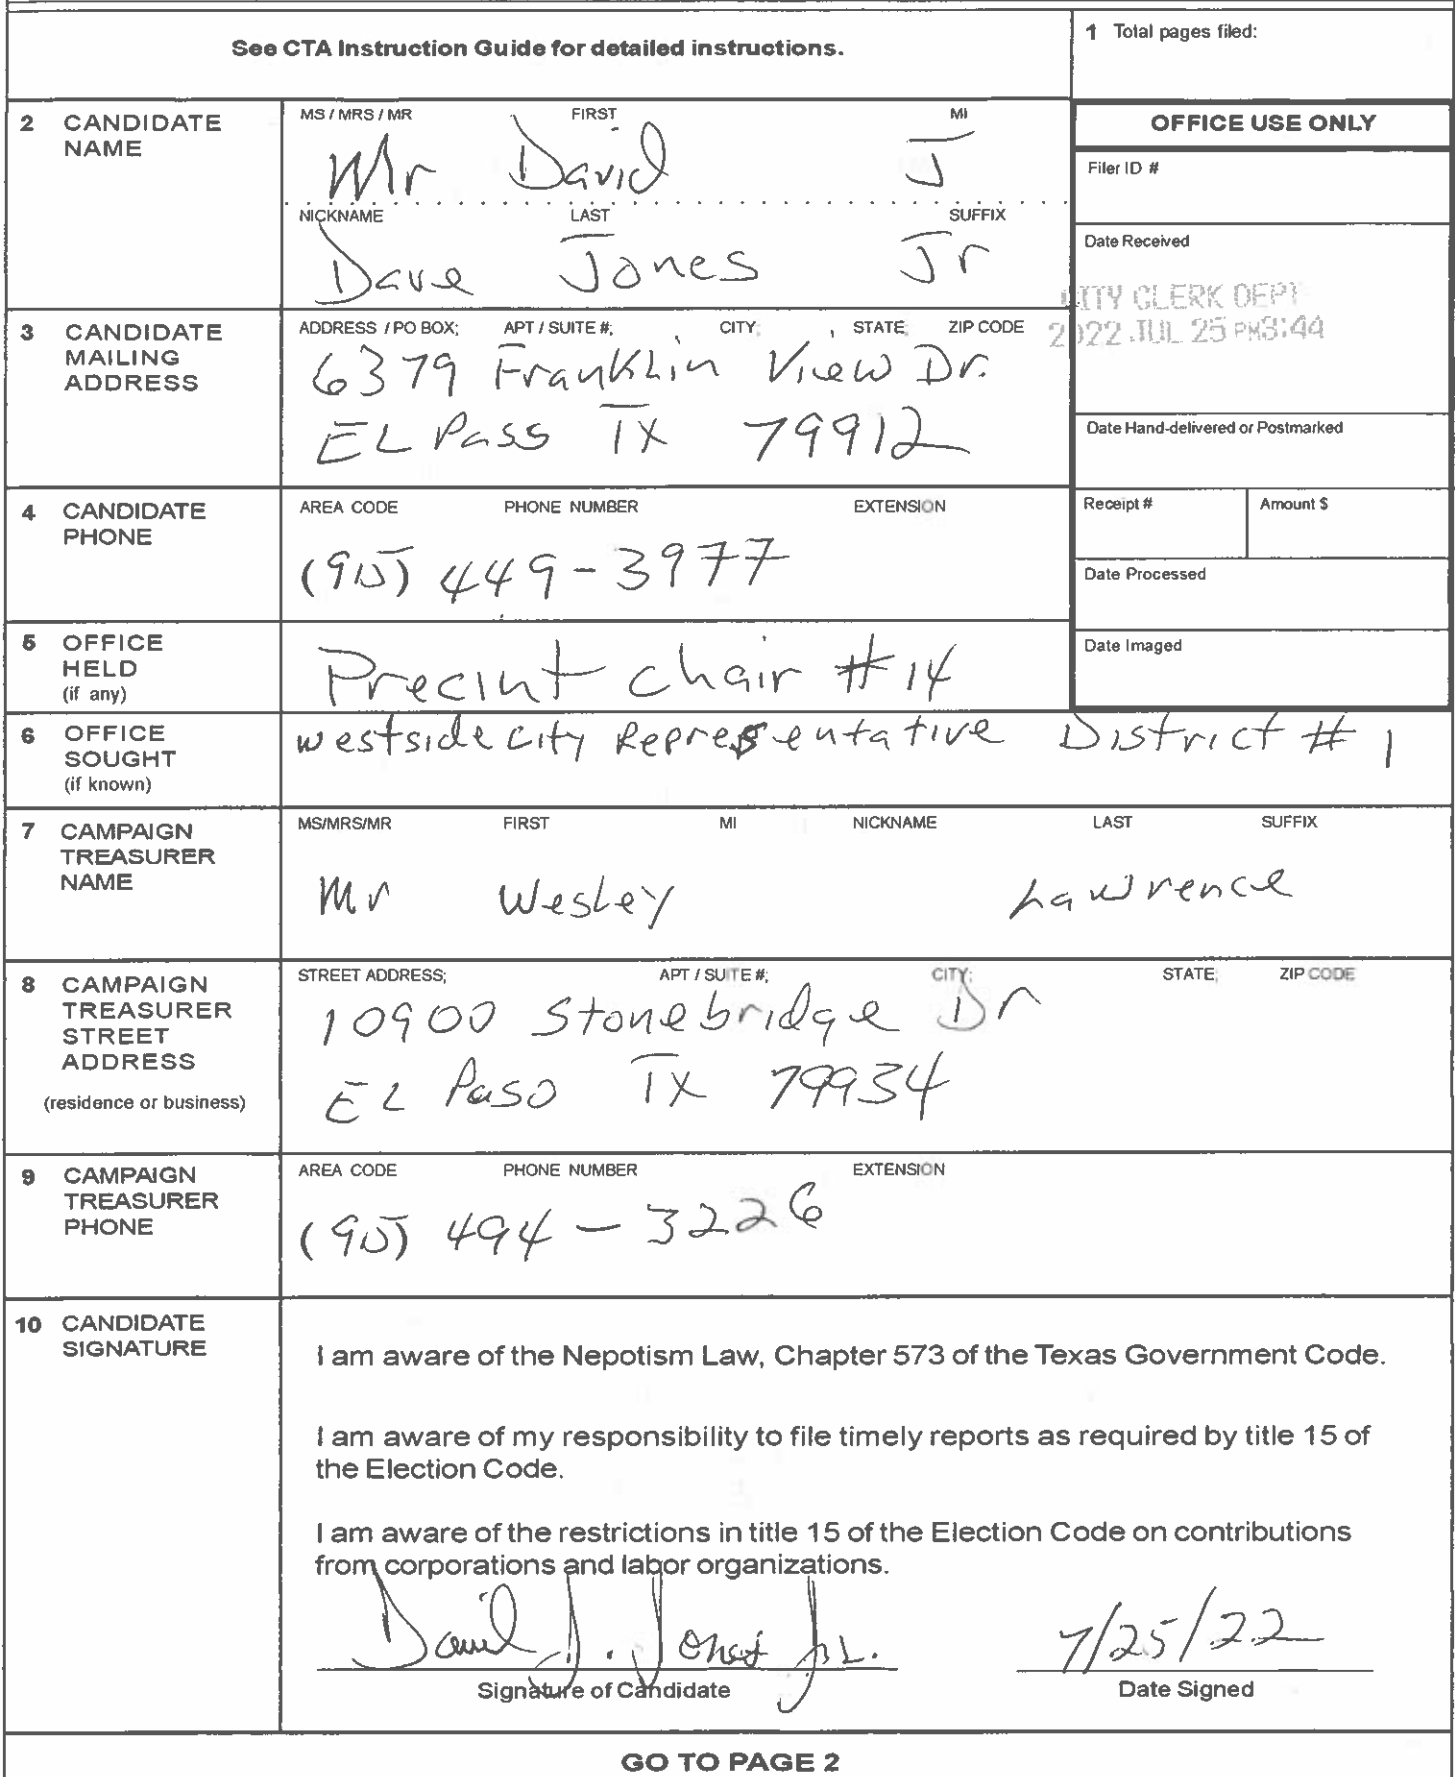 See CTA Instruction Guide for detailed instructions.
1 Total pages filed:
2 CANDIDATE NAME
MS / MRS / MR FIRST MI
Mr David J
NICKNAME LAST SUFFIX
Dave Jones Jr
OFFICE USE ONLY
Filer ID #
Date Received
CITY CLERK DEPT
2022 JUL 25 PM3:44
Date Hand-delivered or Postmarked
Receipt # Amount $
Date Processed
Date Imaged
3 CANDIDATE MAILING ADDRESS
ADDRESS / PO BOX; APT / SUITE #; CITY; STATE; ZIP CODE
6379 Franklin View Dr.
EL Paso TX 79912
4 CANDIDATE PHONE
AREA CODE PHONE NUMBER EXTENSION
(915) 449-3977
5 OFFICE HELD (if any)
Precint chair #14
6 OFFICE SOUGHT (if known)
westside city Representative District # 1
7 CAMPAIGN TREASURER NAME
MS/MRS/MR FIRST MI NICKNAME LAST SUFFIX
Mr Wesley Lawrence
8 CAMPAIGN TREASURER STREET ADDRESS (residence or business)
STREET ADDRESS; APT / SUITE #; CITY; STATE; ZIP CODE
10900 Stonebridge Dr
EL Paso TX 79934
9 CAMPAIGN TREASURER PHONE
AREA CODE PHONE NUMBER EXTENSION
(915) 494-3226
10 CANDIDATE SIGNATURE
I am aware of the Nepotism Law, Chapter 573 of the Texas Government Code.
I am aware of my responsibility to file timely reports as required by title 15 of
the Election Code.
I am aware of the restrictions in title 15 of the Election Code on contributions
from corporations and labor organizations.
David J. Jones Jr. 7/25/22
Signature of Candidate Date Signed
GO TO PAGE 2